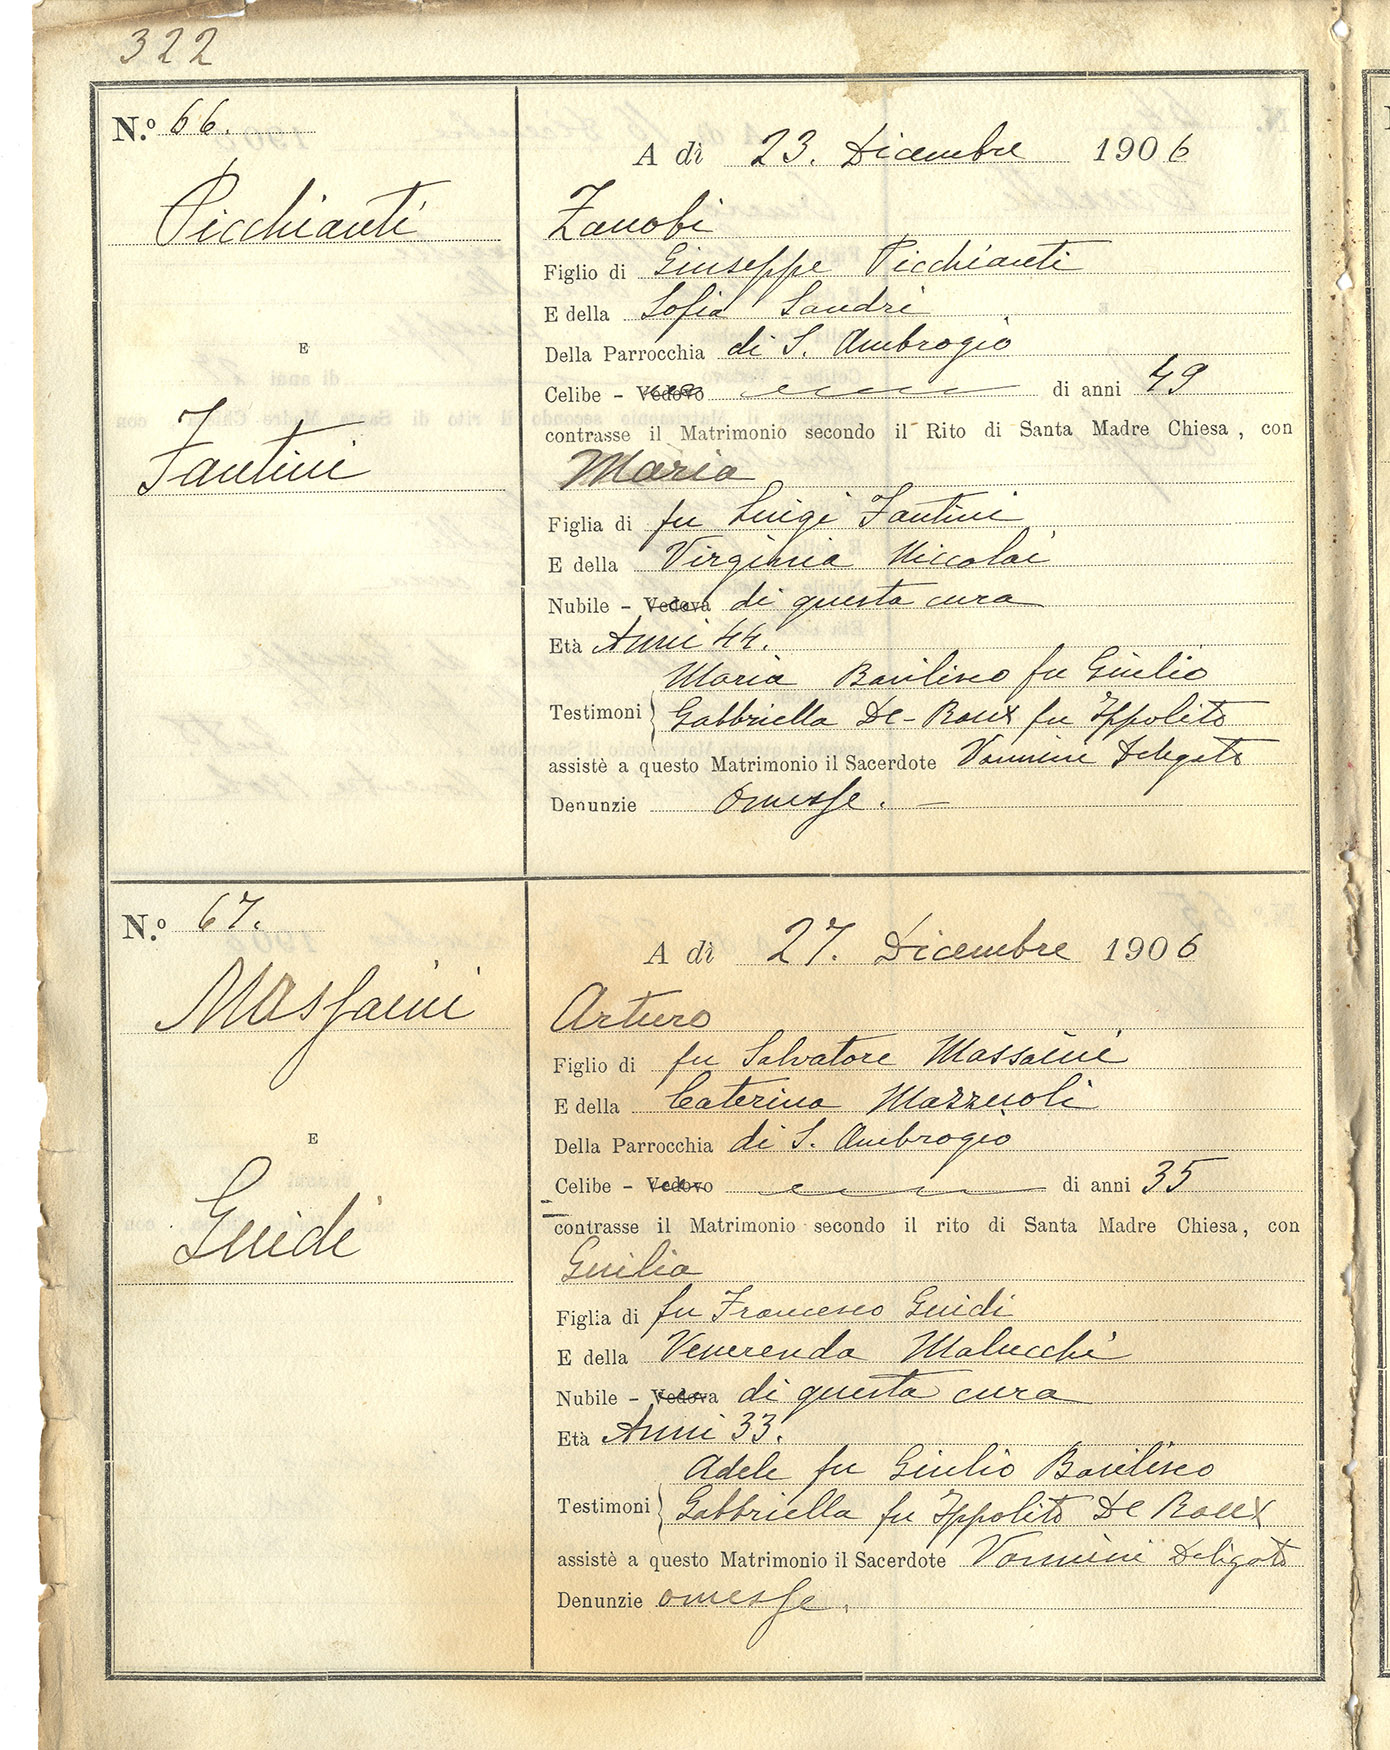 322
N.º 66.
Picchianti
E
Fantini
A dì 23. Dicembre 1906
Zanobi
Figlio di Giuseppe Picchianti
E della Sofia Landri
Della Parrocchia di S. Ambrogio
Celibe - Vedovo di anni 49
contrasse il Matrimonio secondo il Rito di Santa Madre Chiesa, con
Maria
Figlia di fu Luigi Fantini
E della Virginia Niccolai
Nubile - Vedova di questa cura
Età Anni 44.
Maria Basilisco fu Giulio
Testimoni } Gabbriella De-Roux fu Ippolito
assistè a questo Matrimonio il Sacerdote Vannini Delegato
Denunzie Omesse. —
N.º 67.
Massaini
E
Guidi
A dì 27. Dicembre 1906
Arturo
Figlio di fu Salvatore Massaini
E della Caterina Mazzuoli
Della Parrocchia di S. Ambrogio
Celibe - Vedovo di anni 35
contrasse il Matrimonio secondo il rito di Santa Madre Chiesa, con
Giulia
Figlia di fu Francesco Guidi
E della Venerenda Malucchi
Nubile - Vedova di questa cura
Età Anni 33.
Adele fu Giulio Basilisco
Testimoni } Gabbriella fu Ippolito De Roux
assistè a questo Matrimonio il Sacerdote Vannini Deligato
Denunzie omesse.